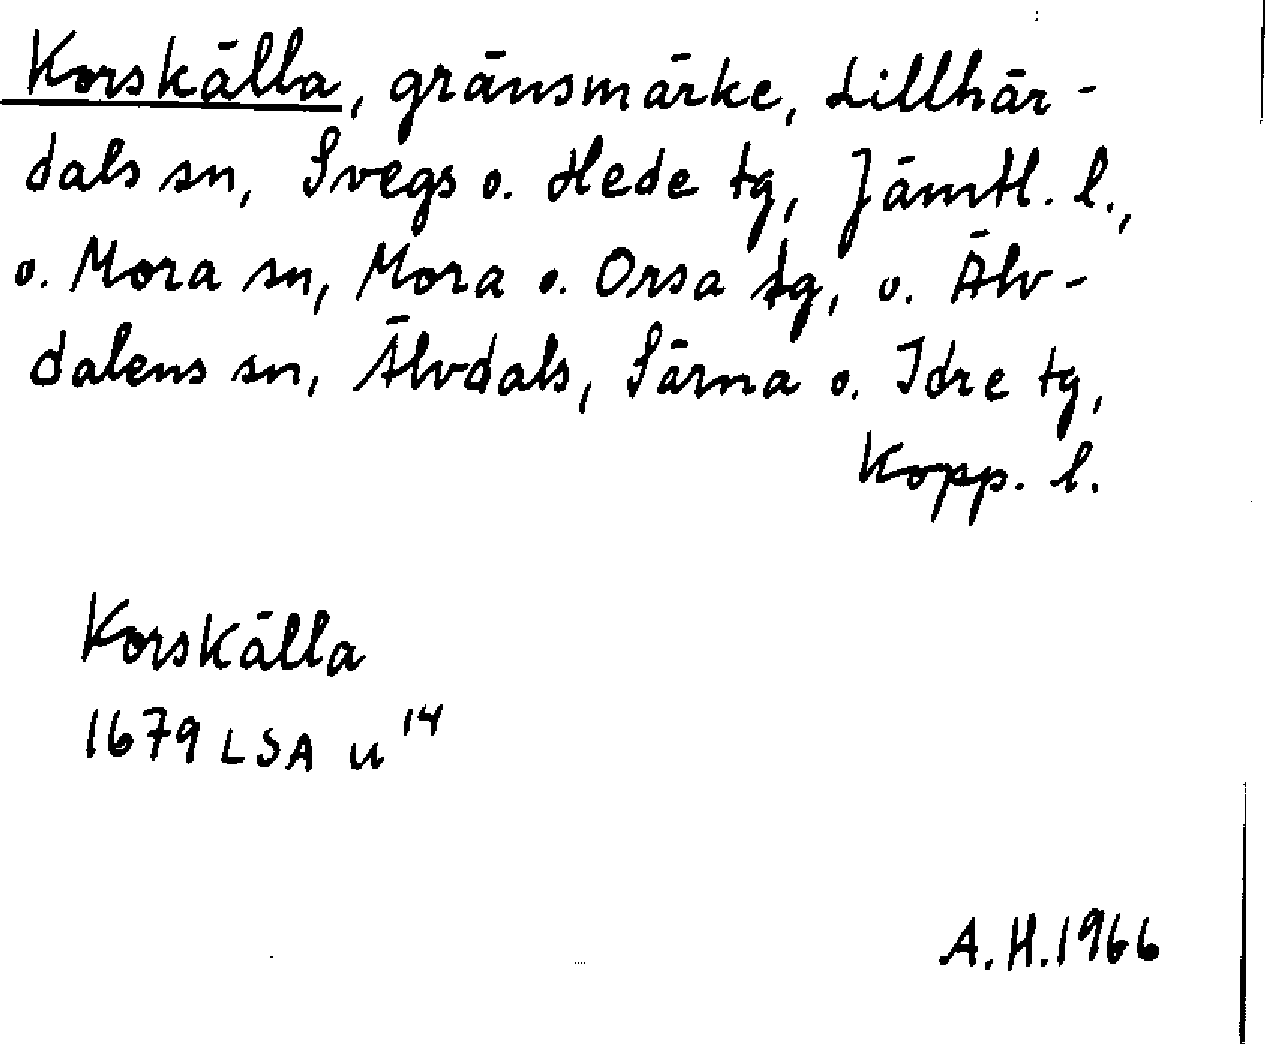 Korskälla, gränsmärke, Lillhär-
dals sn, Svegs o. Hede tg, Jämtl. l.,
o. Mora sn, Mora o. Orsa tg, o. Älv-
dalens sn, Älvdals, Särna o. Idre tg,
Kopp. l.
Korskälla
1679 LSA u 14
A.H. 1966